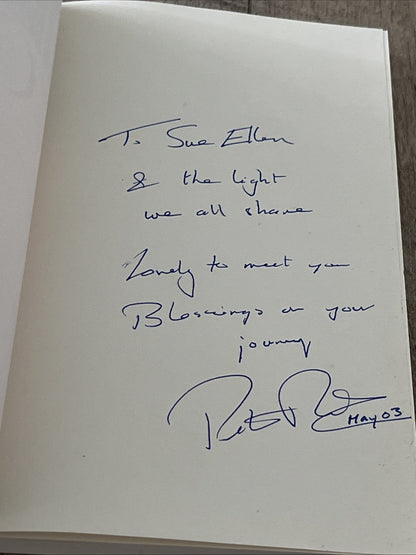 To Sue Ellen
& the light
we all share
Lovely to meet you
Blessings on your
journey
May 03